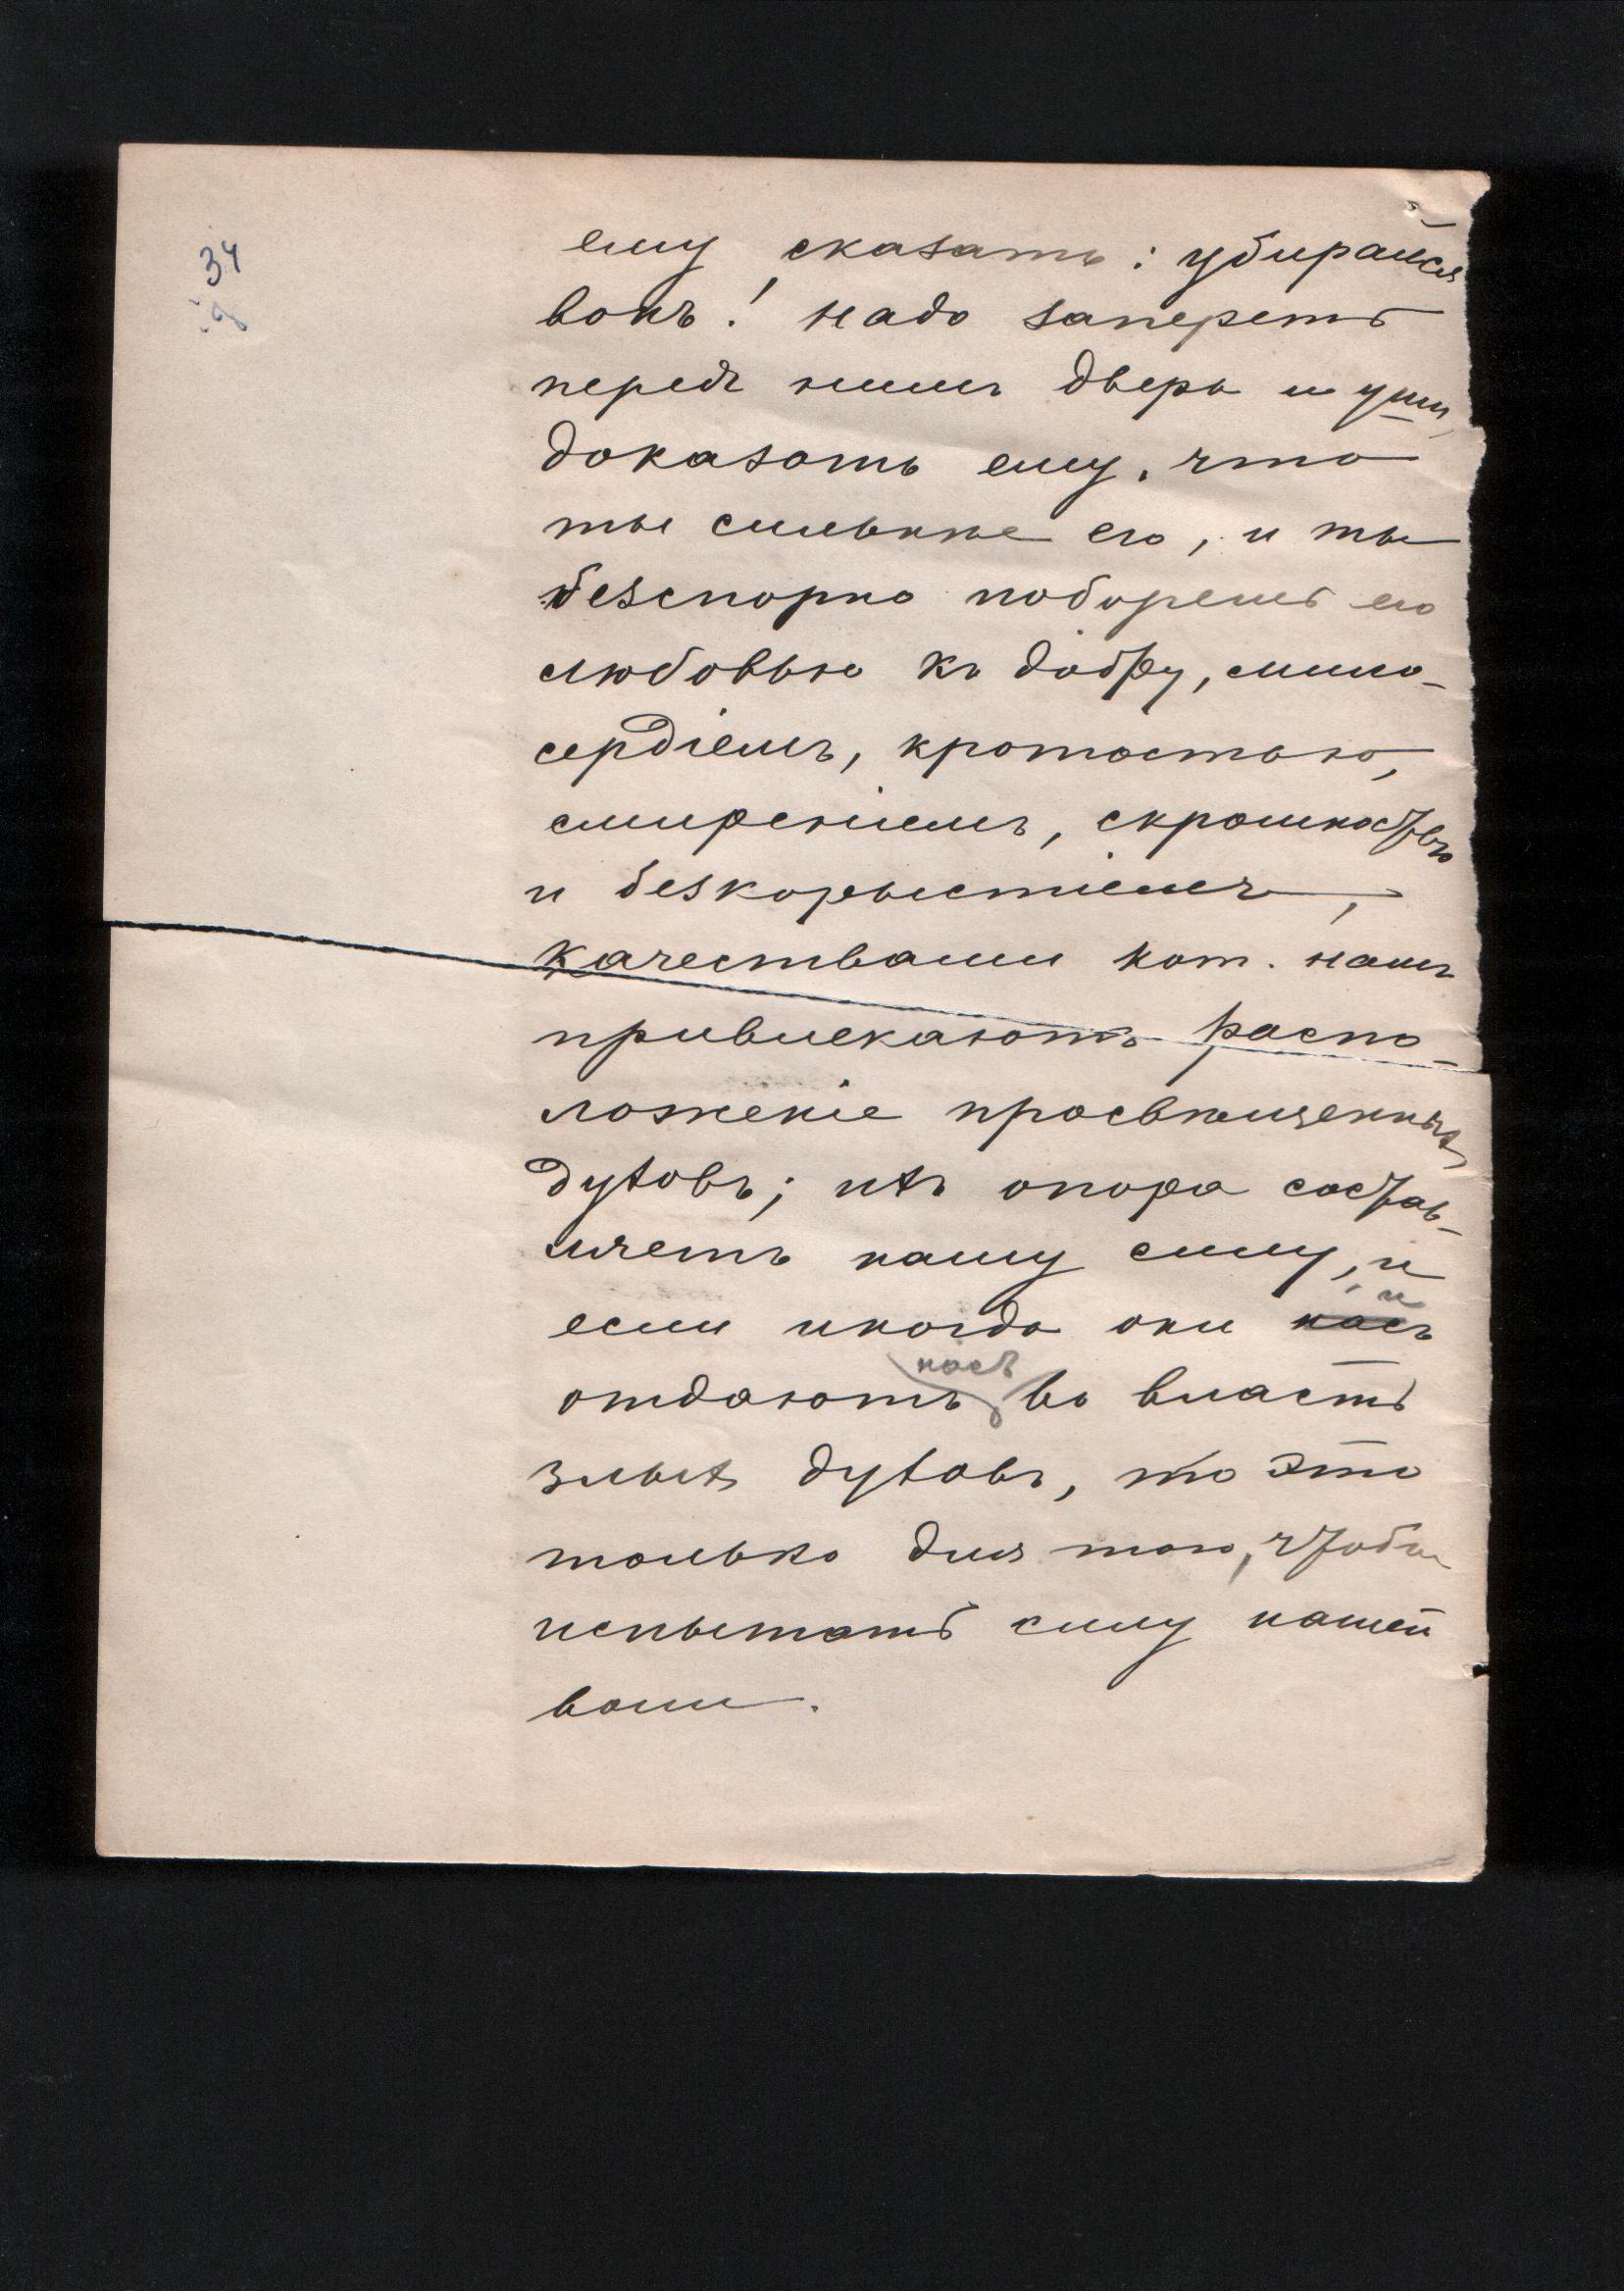 34
ему сказать: убирайся
вонъ! надо запереть
передъ нимъ дверь и уши,
доказать ему, что
ты сильнѣе его, и ты
безспорно поборешь его
любовью къ добру, мило-
сердіемъ, кротостью,
смиреніемъ, скромностью
и безкорыстіемъ,
качествами кот. намъ
привлекаютъ распо-
ложеніе просвѣщенныхъ
духовъ; ихъ опора состав-
ляетъ нашу силу, и
если иногда они насъ
насъ
отдаютъ во власть
злыхъ духовъ, то это
только для того, чтобы
испытать силу нашей
воли.